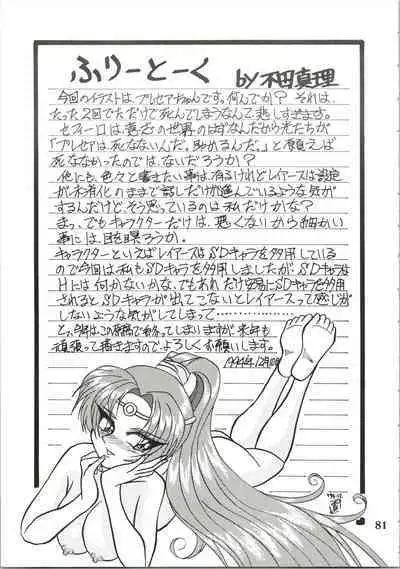 ふりーとーく
by 不田真理
今回のイラストは、プレセアちゃんです。何んでか？それは、
たった2回でただけで死んでしまうなんて、悲しすぎます。
セフィーロは、意志の世界のはずなんだから光たちが
「プレセアは死なないんだ。助めるんだ。」と願えば
死ななかったのでは、ないだろうか？
他にも、色々と書きたい事は、有るけれどレイアースは設定
が未消化のままで話しだけが進んでいるような気が
するんだけど、そう思っているのは私だけかな？
まっ、でもキャラクターだけは、悪くないから細かい
事には、目を瞑ろうか。
キャラクターといえばレイアースはSDキャラを多用している
ので今回は私もSDキャラを多用しましたが、SDキャラは
Hには向かないかな、でもあれだけ安易にSDキャラを多用
されるとSDキャラが出てこないとレイアースって感じが
しないような気がしてしまって……………
とっ、今年は、この原稿で終ってしまいますが、来年も
頑張って描きますので、よろしくお願いします。
1994年12月
81